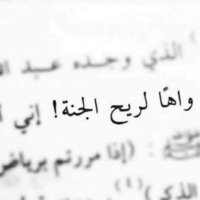 الذي وجده عبد
واهًا لريح الجنة! إني
: (إذا مررتم برياض
الذكر)(٤)